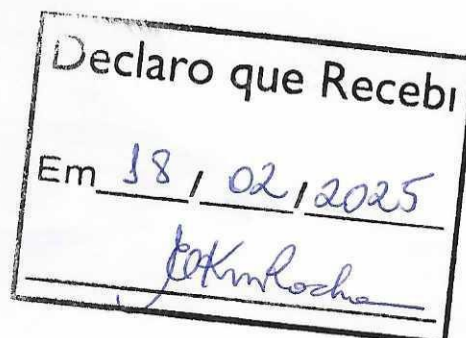 Declaro que Recebi
Em 18 / 02 / 2025